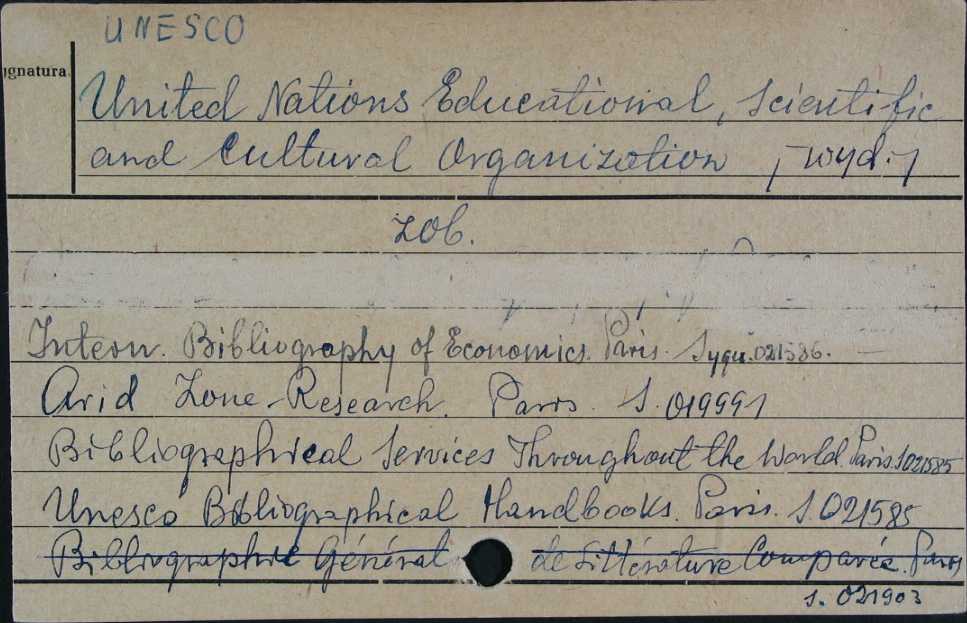 UNESCO
ygnatura.
United Nations Educational, Scientific
and Cultural Organization, /wyd./
zob.
Intern. Bibliography of Economics. Paris. Sygn. 021586.
Arid Zone-Research. Paris. S. 019991
Bibliographical Services Throughout the World. Paris. S 021585
Unesco Bibliographical Handbooks. Paris. S. 021585
Bibliographie Général de Littérature Comparée. Paris
S. 021903